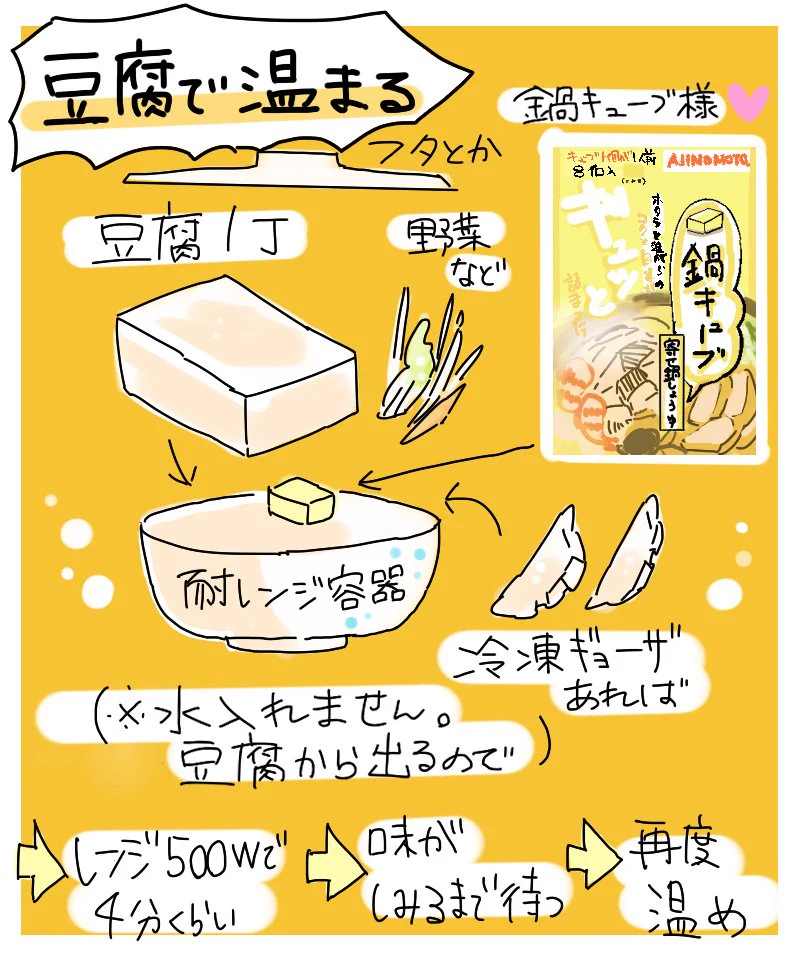 豆腐で温まる
鍋キューブ様
フタとか
豆腐1丁
野菜
など
キューブ1個が1人前
8個入
AJINOMOTO
ギュッと
鍋キューブ
寄せ鍋しょうゆ
耐レンジ容器
冷凍ギョーザ
あれば
(※水入れません。
豆腐から出るので)
レンジ500Wで
4分くらい
味が
しみるまで待つ
再度
温め